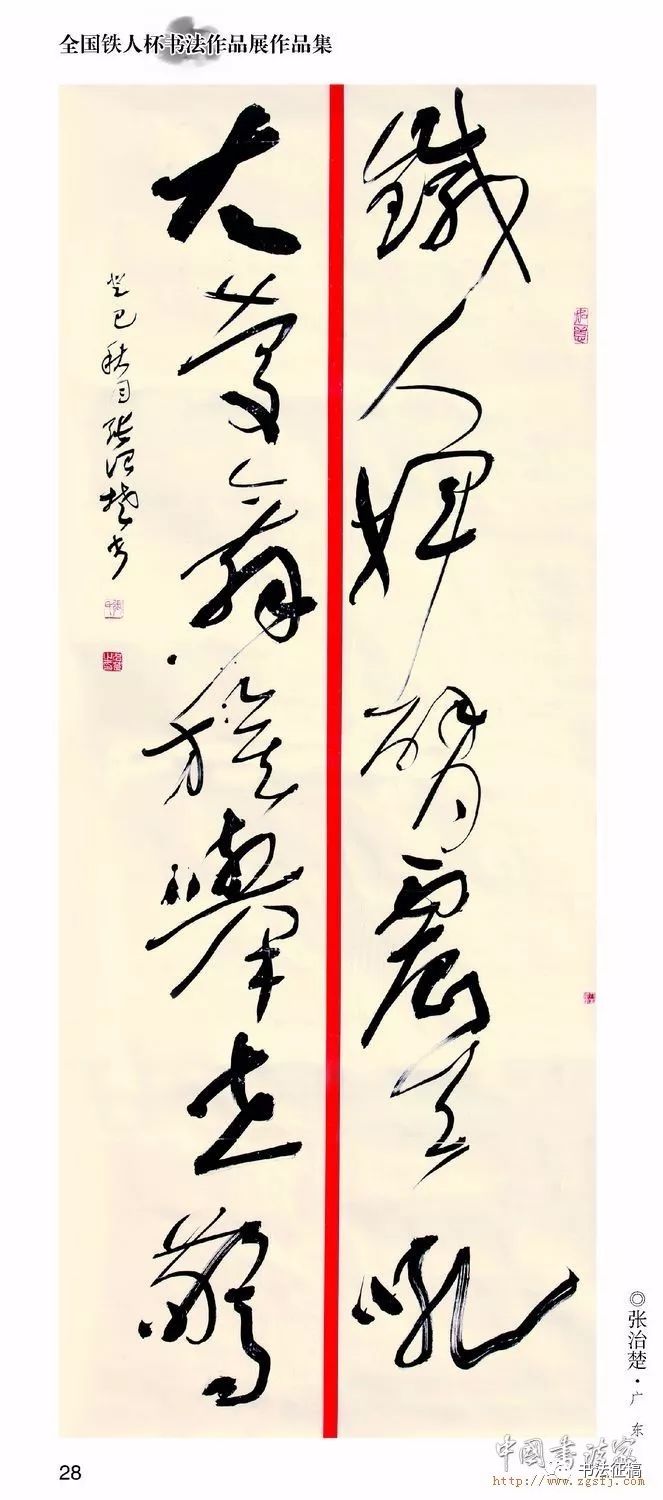 全国铁人杯书法作品展作品集
鐵人挥臂震天吼
大慶舞旗舉世驚
癸巳秋月张治楚书
◎张治楚·广东
28
中國書法家
书法征稿
http://www.zgsfj.com